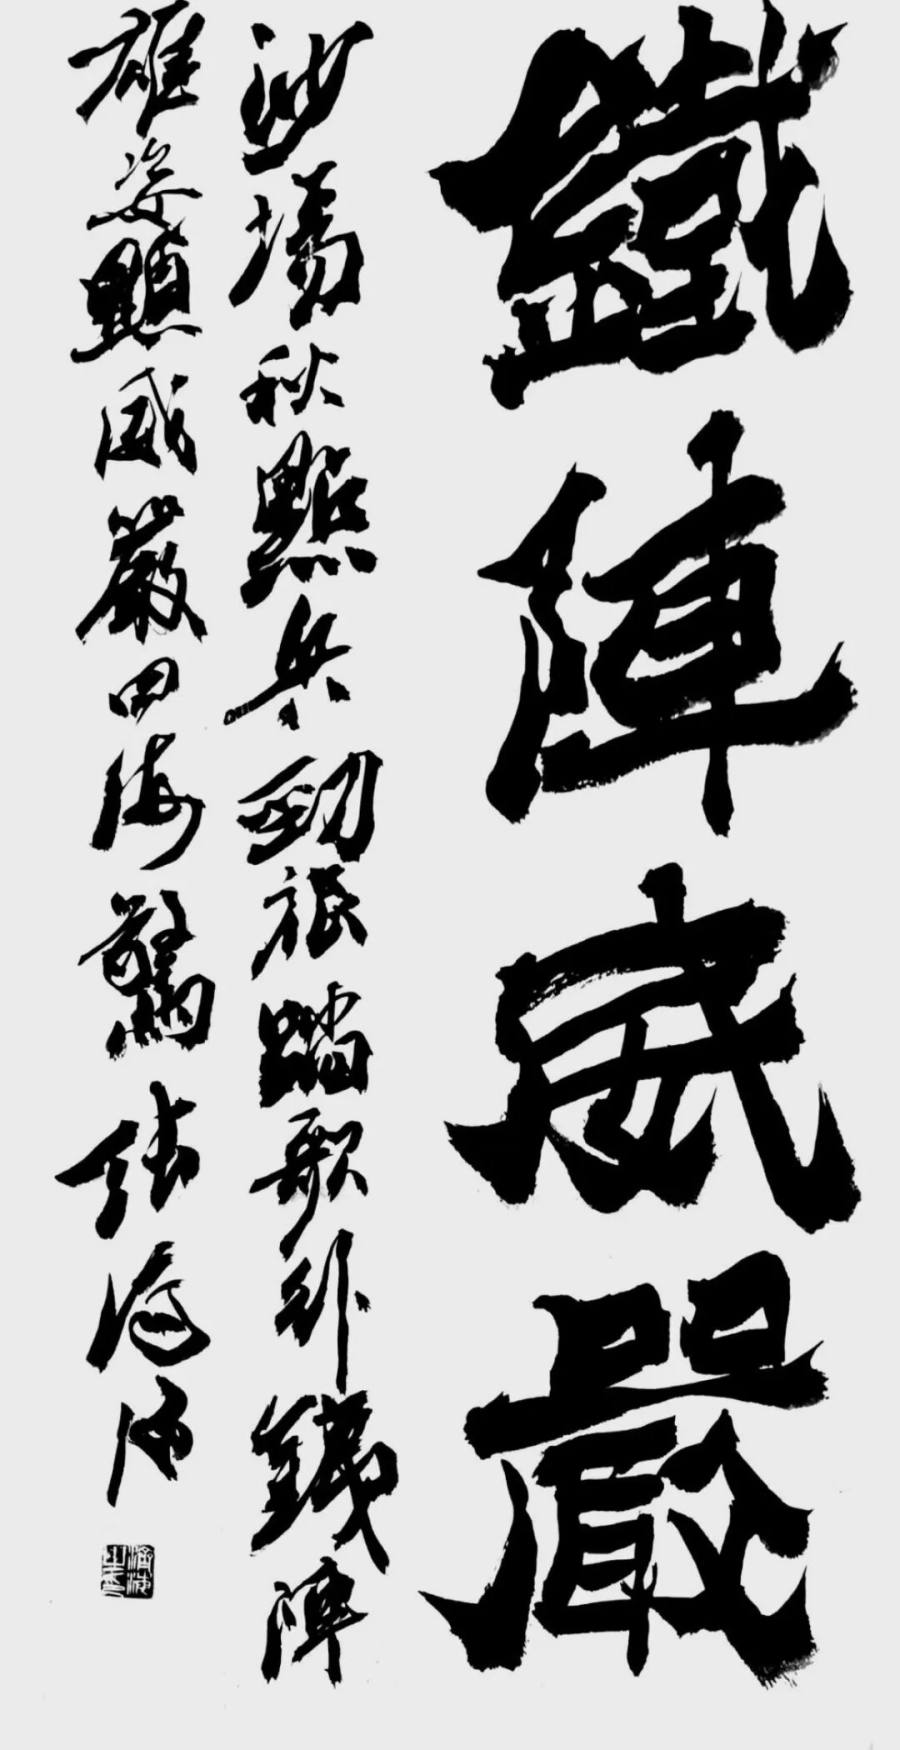 鐵陣威嚴
沙場秋點兵勁旅踏歌行鐵陣
雄姿顯威嚴四海驚 張濟海
濟海